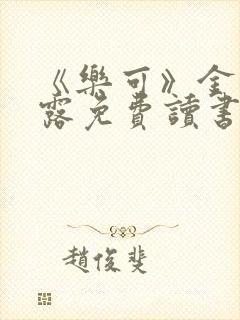 《樂可》金
露免費讀書
趙俊斐